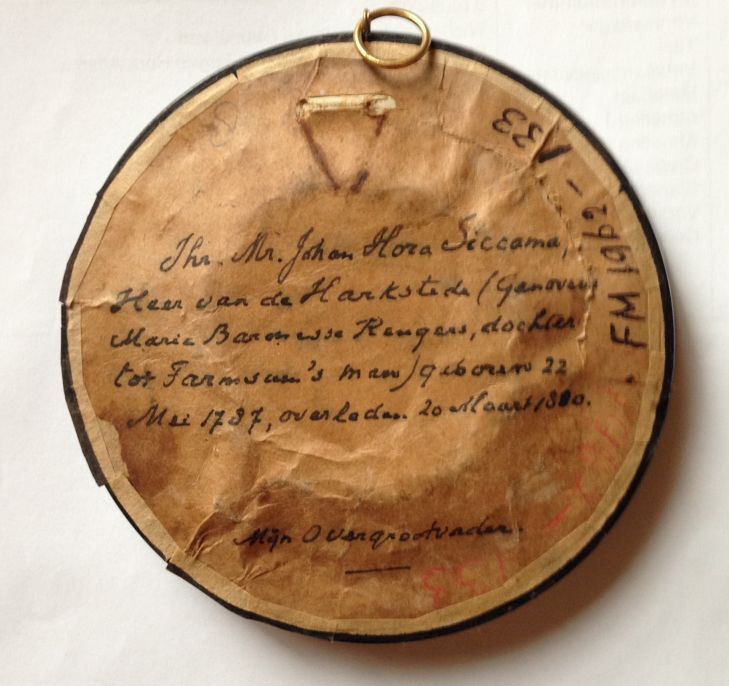 Jhr. Mr. Johan Hora Siccama,
Heer van de Harkstede (Genoveva
Maria Baronesse Rengers, dochter
tot Farmsum's man) geboren 22
Mei 1787, overleden 20 Maart 1880.
Mijn Overgrootvader.
FM 1962-133
1962-133